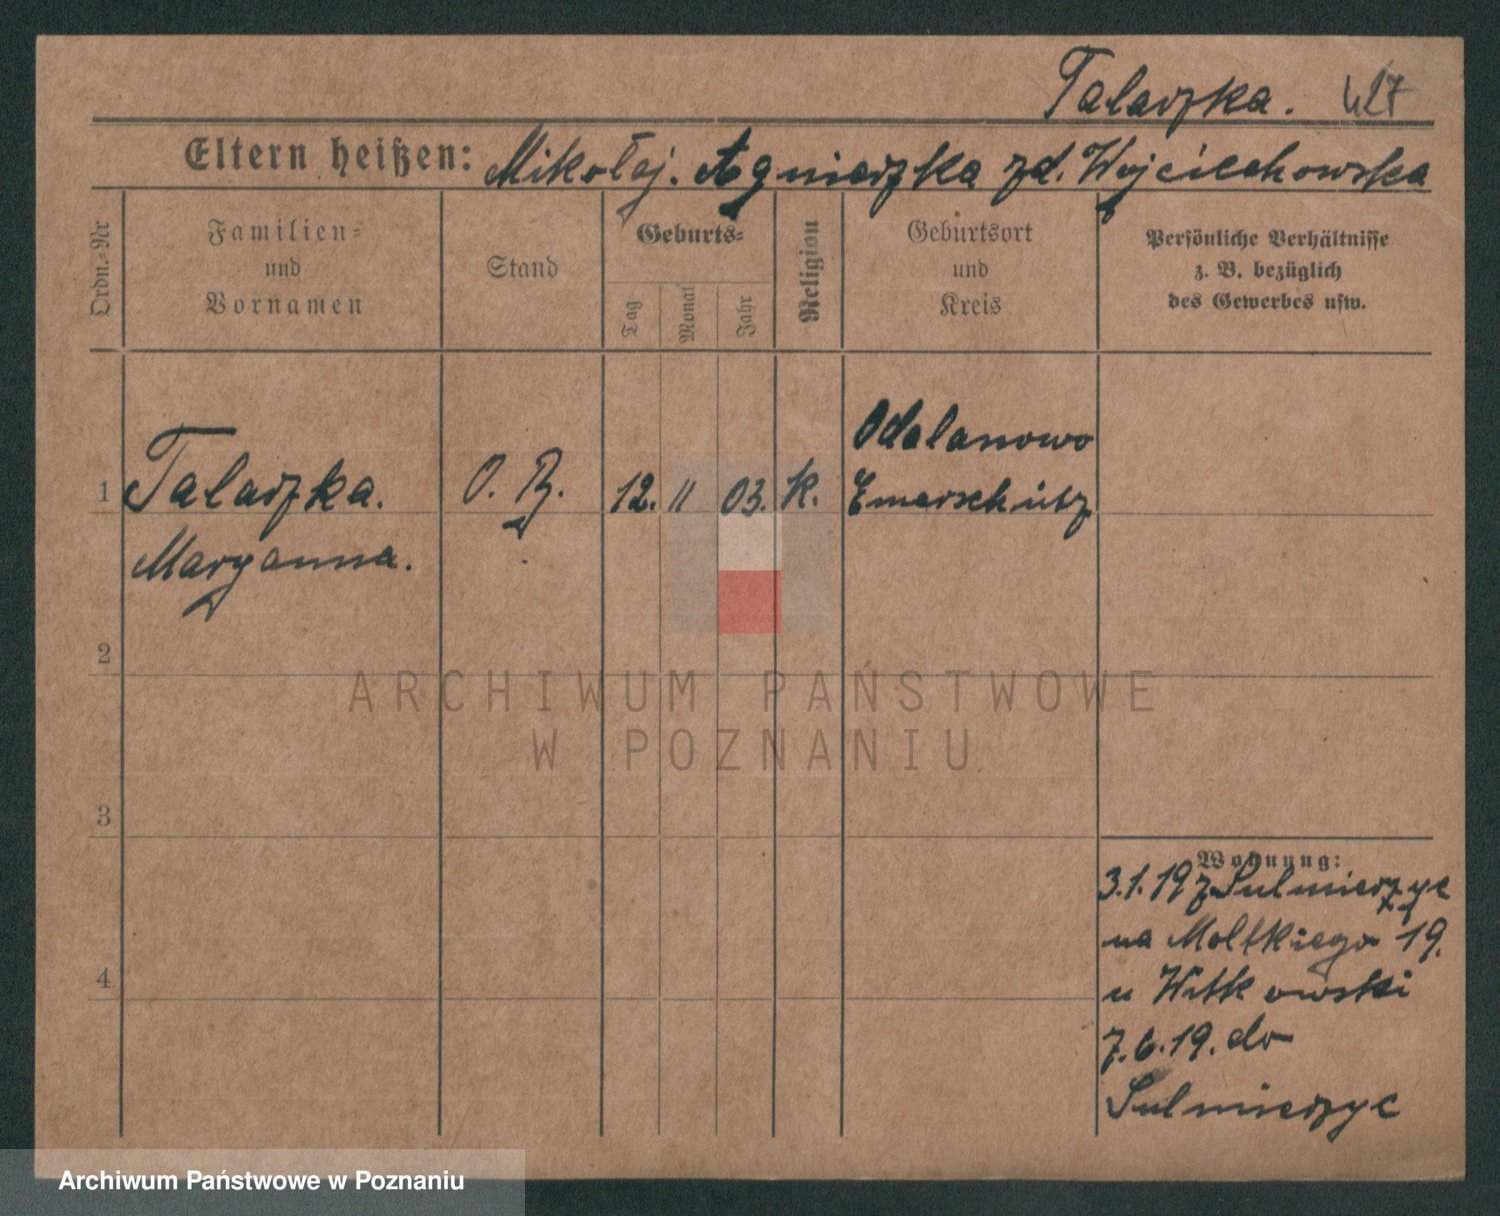 Talaszka. 427
Eltern heißen: Mikołaj. Agnieszka zd. Wojciechowska
Ordn.-Nr
Familien- und Vornamen
Stand
Geburts-
Tag
Monat
Jahr
Religion
Geburtsort und Kreis
Persönliche Verhältnisse
z. B. bezüglich
des Gewerbes usw.
Odolanowo
1 Talaszka. O. B. 12. 11 03. k.
Maryanna.
2
ARCHIWUM PAŃSTWOWE
W POZNANIU
3
Wohnung:
3.1.19 z Sulmierzyc
na Moltkiego 19.
4
u Witkowski
7.6.19. do
Sulmierzyc
Archiwum Państwowe w Poznaniu